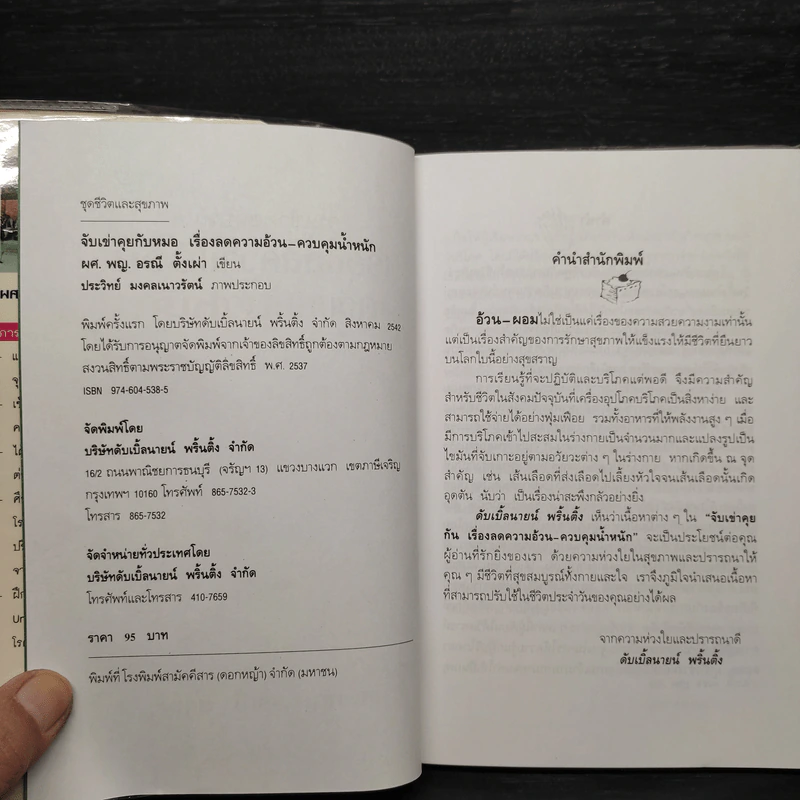 ชุดชีวิตและสุขภาพ
จับเข่าคุยกับหมอ เรื่องลดความอ้วน-ควบคุมน้ำหนัก
ผศ. พญ. อรณี ตั้งเผ่า เขียน
ประวิทย์ มงคลเนาวรัตน์ ภาพประกอบ
พิมพ์ครั้งแรก โดยบริษัทดับเบิ้ลนายน์ พริ้นติ้ง จำกัด สิงหาคม 2542
โดยได้รับการอนุญาตจัดพิมพ์จากเจ้าของลิขสิทธิ์ถูกต้องตามกฎหมาย
สงวนสิทธิ์ตามพระราชบัญญัติลิขสิทธิ์ พ.ศ. 2537
ISBN 974-604-538-5
จัดพิมพ์โดย
บริษัทดับเบิ้ลนายน์ พริ้นติ้ง จำกัด
16/2 ถนนพาณิชยการธนบุรี (จรัญฯ 13) แขวงบางแวก เขตภาษีเจริญ
กรุงเทพฯ 10160 โทรศัพท์ 865-7532-3
โทรสาร 865-7532
จัดจำหน่ายทั่วประเทศโดย
บริษัทดับเบิ้ลนายน์ พริ้นติ้ง จำกัด
โทรศัพท์และโทรสาร 410-7659
ราคา 95 บาท
พิมพ์ที่ โรงพิมพ์สามัคคีสาร (ดอกหญ้า) จำกัด (มหาชน)
คำนำสำนักพิมพ์
อ้วน-ผอมไม่ใช่เป็นแค่เรื่องของความสวยความงามเท่านั้น
แต่เป็นเรื่องสำคัญของการรักษาสุขภาพให้แข็งแรงให้มีชีวิตที่ยืนยาว
บนโลกใบนี้อย่างสุขสราญ
การเรียนรู้ที่จะปฏิบัติและบริโภคแต่พอดี จึงมีความสำคัญ
สำหรับชีวิตในสังคมปัจจุบันที่เครื่องอุปโภคบริโภคเป็นสิ่งหาง่าย และ
สามารถใช้จ่ายได้อย่างฟุ่มเฟือย รวมทั้งอาหารที่ให้พลังงานสูง ๆ เมื่อ
มีการบริโภคเข้าไปสะสมในร่างกายเป็นจำนวนมากและแปลงรูปเป็น
ไขมันที่จับเกาะอยู่ตามอวัยวะต่าง ๆ ในร่างกาย หากเกิดขึ้น ณ จุด
สำคัญ เช่น เส้นเลือดที่ส่งเลือดไปเลี้ยงหัวใจจนเส้นเลือดนั้นเกิด
อุดตัน นับว่า เป็นเรื่องน่าสะพึงกลัวอย่างยิ่ง
ดับเบิ้ลนายน์ พริ้นติ้ง เห็นว่าเนื้อหาต่าง ๆ ใน "จับเข่าคุย
กัน เรื่องลดความอ้วน-ควบคุมน้ำหนัก" จะเป็นประโยชน์ต่อคุณ
ผู้อ่านที่รักยิ่งของเรา ด้วยความห่วงใยในสุขภาพและปรารถนาให้
คุณ ๆ มีชีวิตที่สุขสมบูรณ์ทั้งกายและใจ เราจึงภูมิใจนำเสนอเนื้อหา
ที่สามารถปรับใช้ในชีวิตประจำวันของคุณอย่างได้ผล
จากความห่วงใยและปรารถนาดี
ดับเบิ้ลนายน์ พริ้นติ้ง